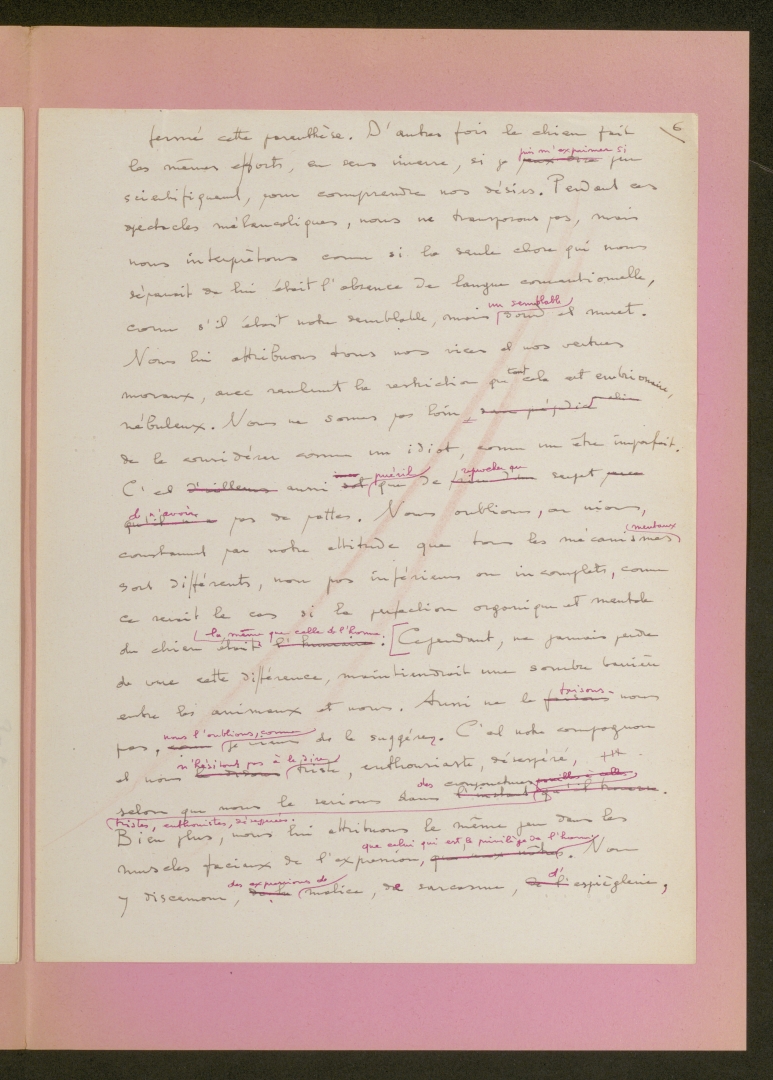 6
fermé cette parenthèse. D'autres fois le chien fait
puis m'exprimer si
les mêmes efforts, en sens inverse, si je peux être peu
scientifiquement, pour comprendre nos désirs. Pendant ces
spectacles mélancoliques, nous ne transposons pas, mais
nous interprétons comme si la seule chose qui nous
séparait de lui était l'absence de langue conventionnelle,
un semblable
comme s'il était notre semblable, mais sourd et muet.
Nous lui attribuons tous nos vices et nos vertus
moraux, avec seulement la restriction que tout cela est embrionnaire,
nébuleux. Nous ne sommes pas loin
de le considérer comme un idiot, comme un être imparfait.
puéril reprocher au
C'est d'ailleurs aussi sot que de sujet
de n'avoir
qu'il n'a pas de pattes. Nous oublions, ou mieux,
mentaux
constamment par notre attitude que tous les mécanismes
sont différents, non pas inférieurs ou incomplets, comme
ce serait le cas si la perfection organique et mentale
la même que celle de l'homme
du chien était l'humaine. [Cependant, ne jamais perdre
de vue cette différence, maintiendrait une sombre barrière
faisons
entre les animaux et nous. Aussi ne le faisons-nous
nous l'oublions, comme
pas, comme je viens de le suggérer. C'est notre compagnon
n'hésitons pas à le dire
et nous le disons triste, enthousiaste, désespéré,
des conjonctures pareilles à celles
selon que nous le serions dans l'instant qu'il traverse.
tristes, enthousiastes, désespérés.
Bien plus, nous lui attribuons le même jeu dans les
que celui qui est le privilège de l'homme
muscles faciaux de l'expression, que aux nôtres. Nous
des expressions de d'
y discernons, de la malice, de sarcasme, de l'espièglerie,